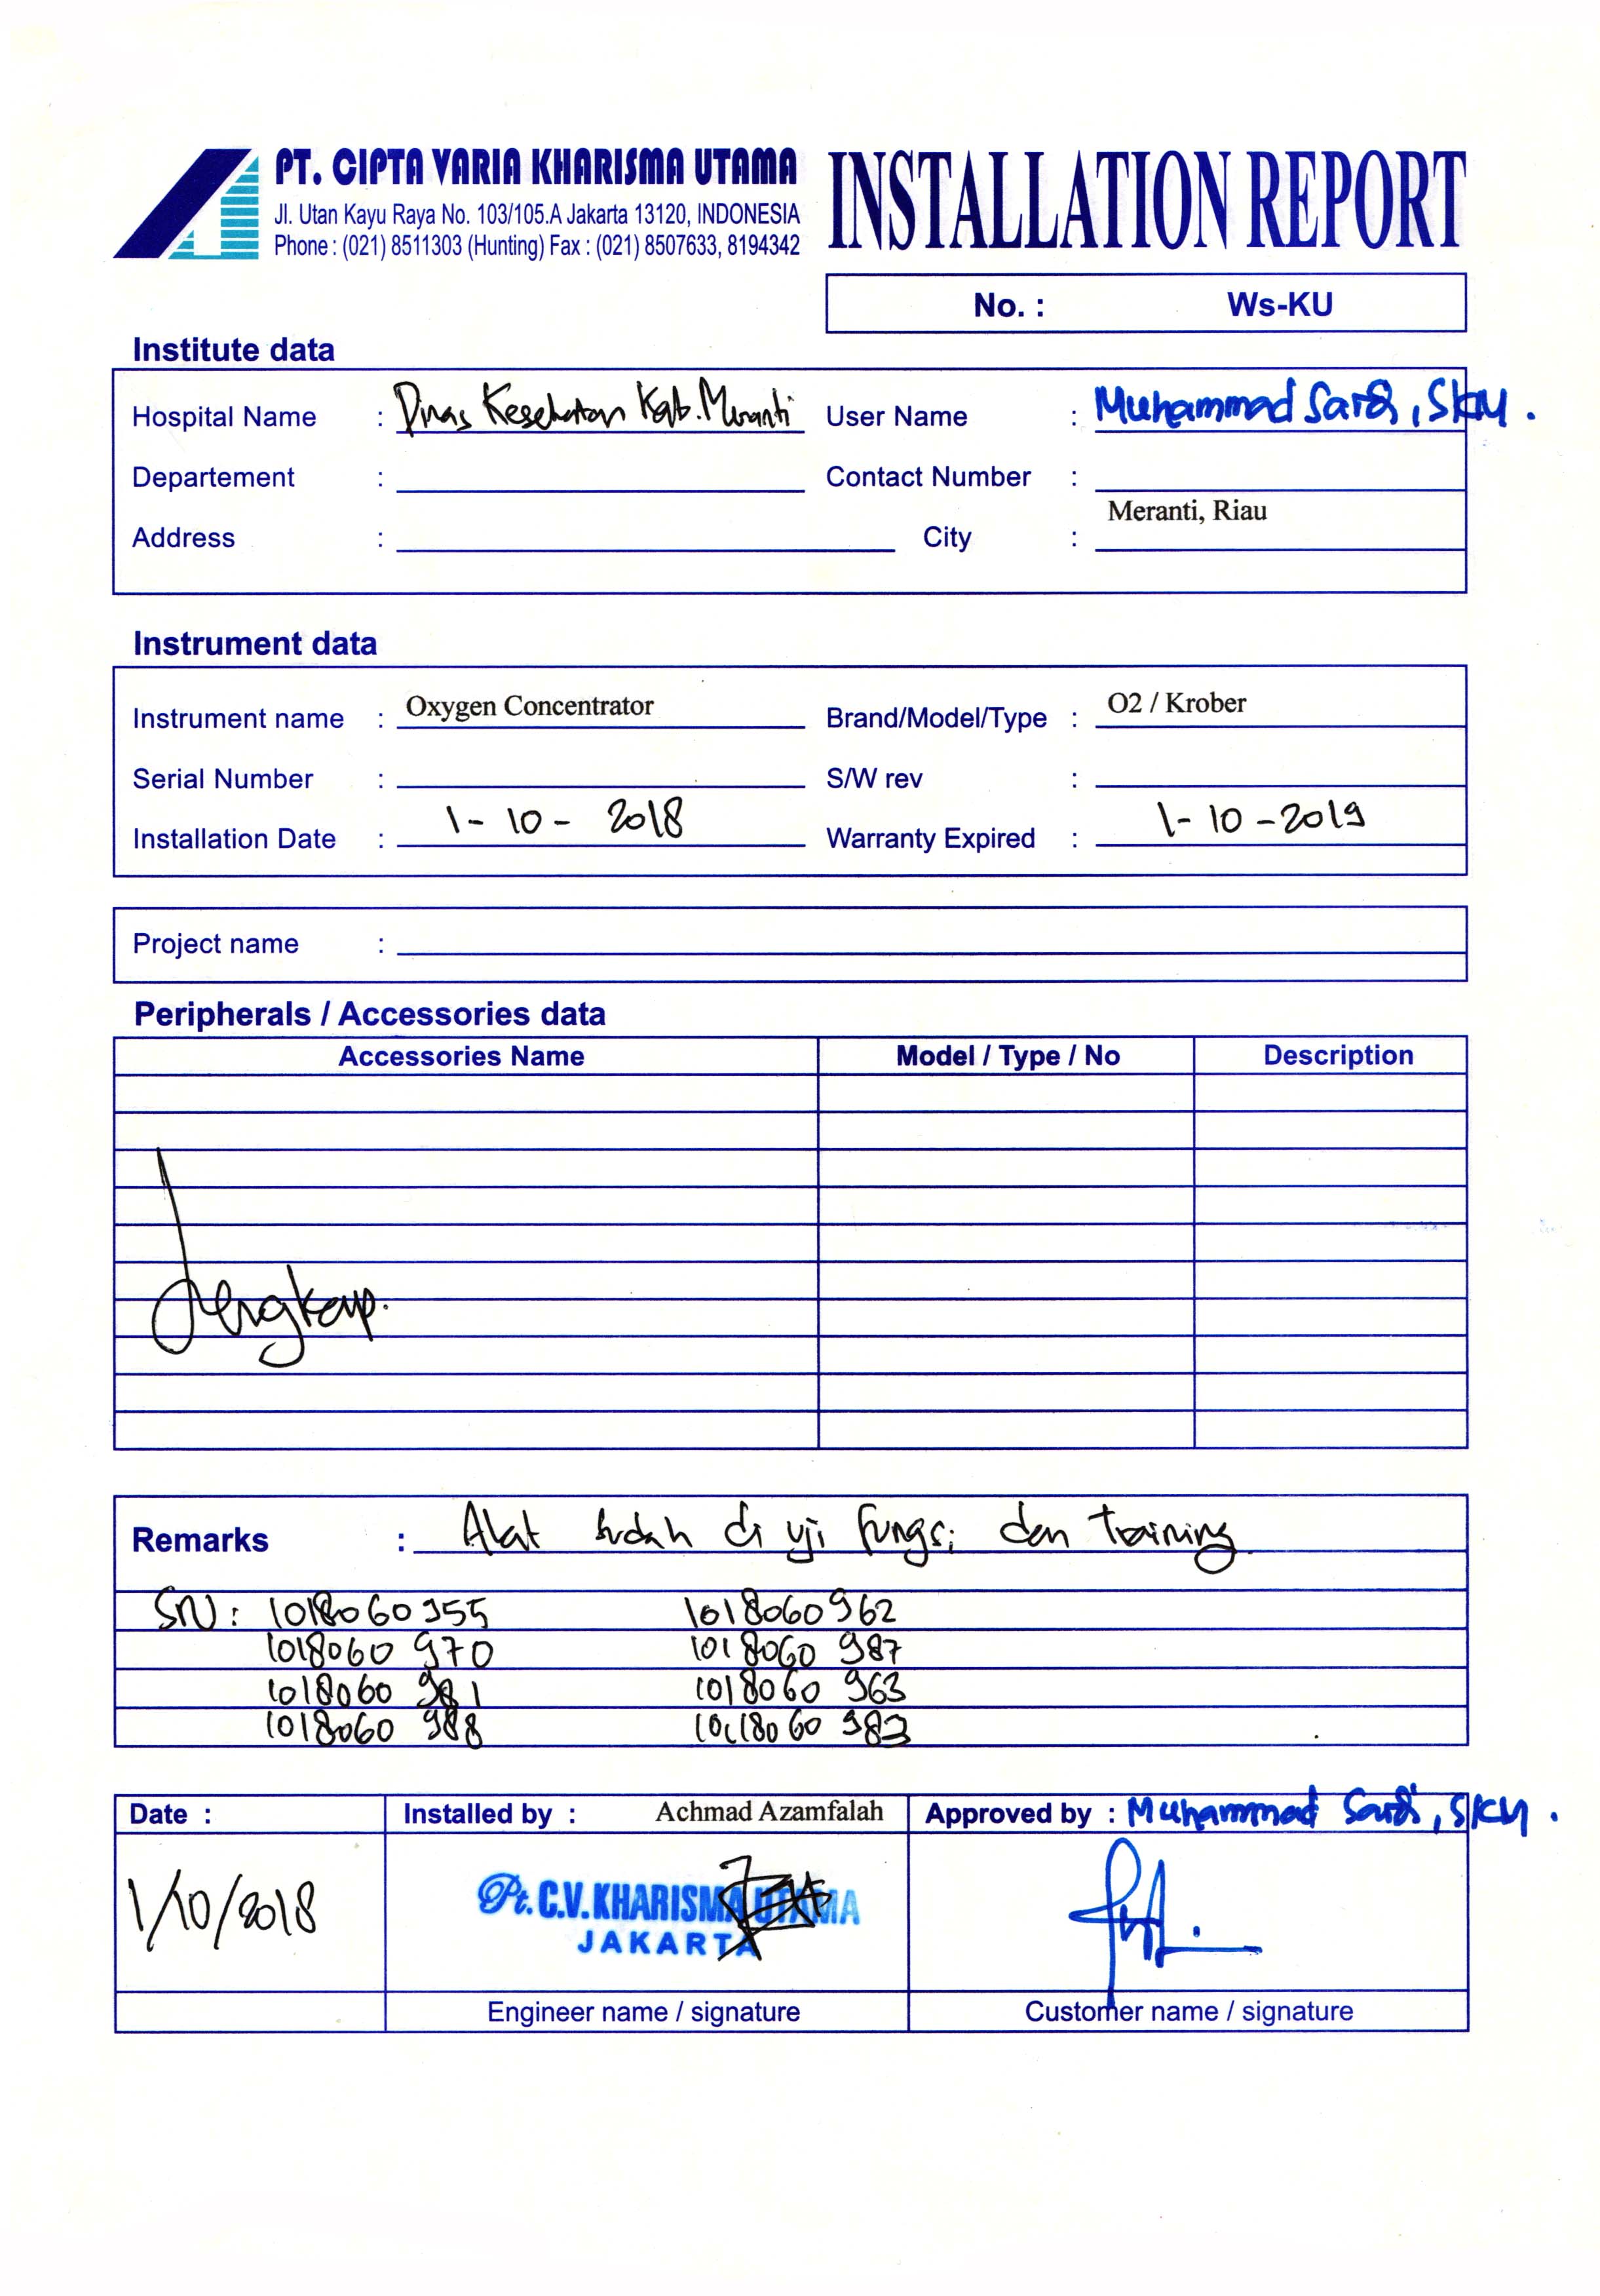 PT. CIPTA VARIA KHARISMA UTAMA
Jl. Utan Kayu Raya No. 103/105.A Jakarta 13120, INDONESIA
Phone : (021) 8511303 (Hunting) Fax : (021) 8507633, 8194342
INSTALLATION REPORT
No. : Ws-KU
Institute data
Hospital Name : Dinas Kesehatan Kab. Meranti User Name : Muhammad Sardi, SKM.
Departement : Contact Number :
Address : City : Meranti, Riau
Instrument data
Instrument name : Oxygen Concentrator Brand/Model/Type : O2 / Krober
Serial Number : S/W rev :
Installation Date : 1-10-2018 Warranty Expired : 1-10-2019
Project name :
Peripherals / Accessories data
Accessories Name Model / Type / No Description
Lengkap.
Remarks : Alat sudah di uji fungsi dan training
SN : 1018060955 1018060962
1018060 970 1018060 987
1018060 981 1018060 963
1018060 988 1018060 983
Date : Installed by : Achmad Azamfalah Approved by : Muhammad Sardi, SKM.
1/10/2018
Pt. C.V. KHARISMA UTAMA
JAKARTA
Engineer name / signature Customer name / signature